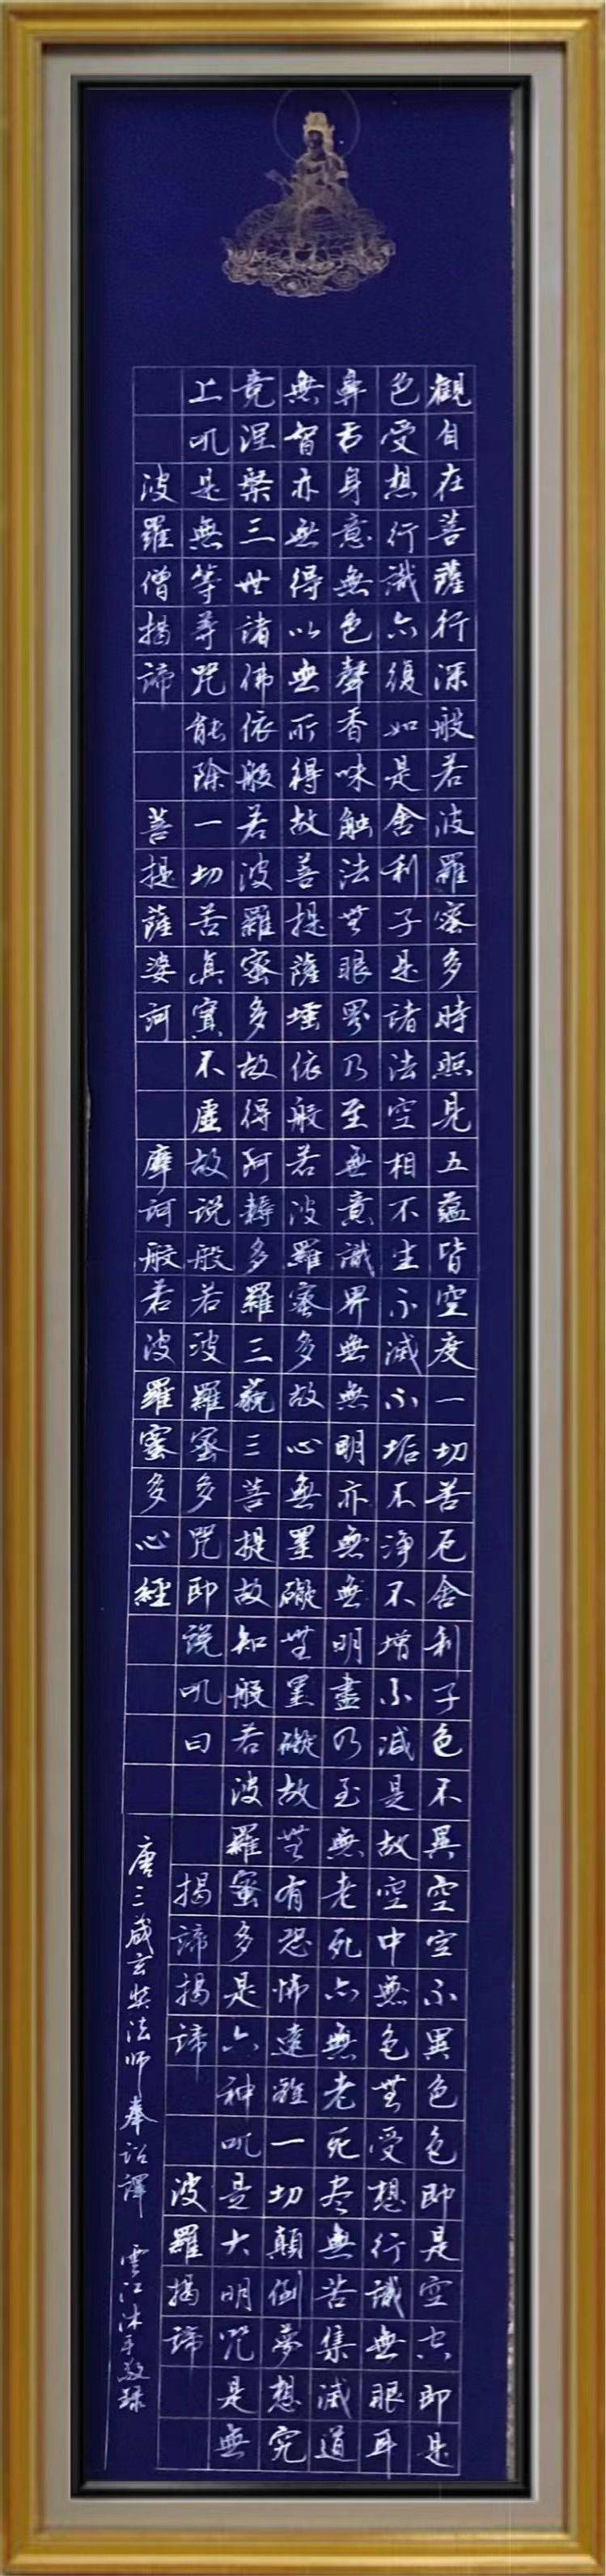 觀自在菩薩行深般若波羅蜜多時照見五蘊皆空度一切苦厄舍利子色不異空空不異色色即是空空即是
色受想行識亦復如是舍利子是諸法空相不生不滅不垢不淨不增不減是故空中無色無受想行識無眼耳
鼻舌身意無色聲香味触法無眼界乃至無意識界無無明亦無無明盡乃至無老死亦無老死尽無苦集滅道
無智亦無得以無所得故菩提薩埵依般若波羅蜜多故心無罣礙無罣礙故無有恐怖遠離一切顛倒夢想究
竟涅槃三世諸佛依般若波羅蜜多故得阿耨多羅三藐三菩提故知般若波羅蜜多是大神呪是大明咒是無
上呪是無等等咒能除一切苦真實不虛故說般若波羅蜜多咒即說呪曰 揭諦揭諦 波羅揭諦
波羅僧揭諦 菩提薩婆訶 摩訶般若波羅蜜多心經
唐三藏玄奘法師奉詔譯 雲江沐手敬錄